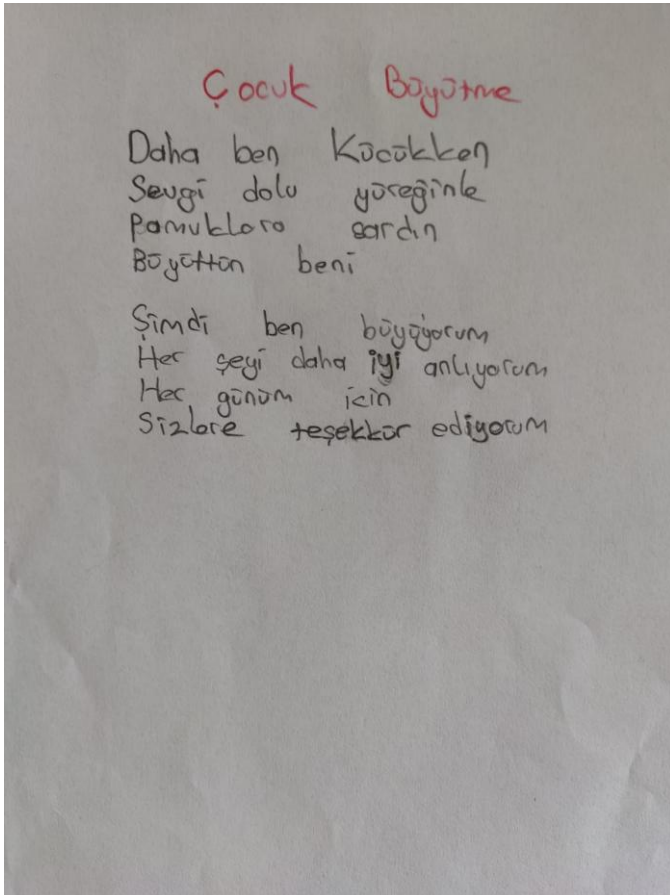 Çocuk Büyütme
Daha ben Küçükken
Sevgi dolu yüreğinle
Pamuklara sardın
Büyüttün beni
Şimdi ben büyüyorum
Her şeyi daha iyi anlıyorum
Her günüm için
Sizlere teşekkür ediyorum